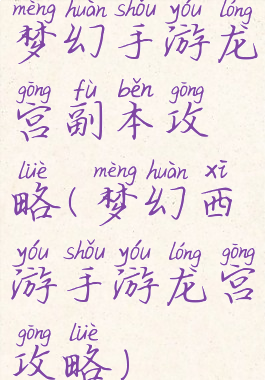 mèng huàn shǒu yóu lóng
梦幻手游龙
gōng fù běn gōng
宫副本攻
lüè mèng huàn xī
略(梦幻西
yóu shǒu yóu lóng gōng
游手游龙宫
gōng lüè
攻略)